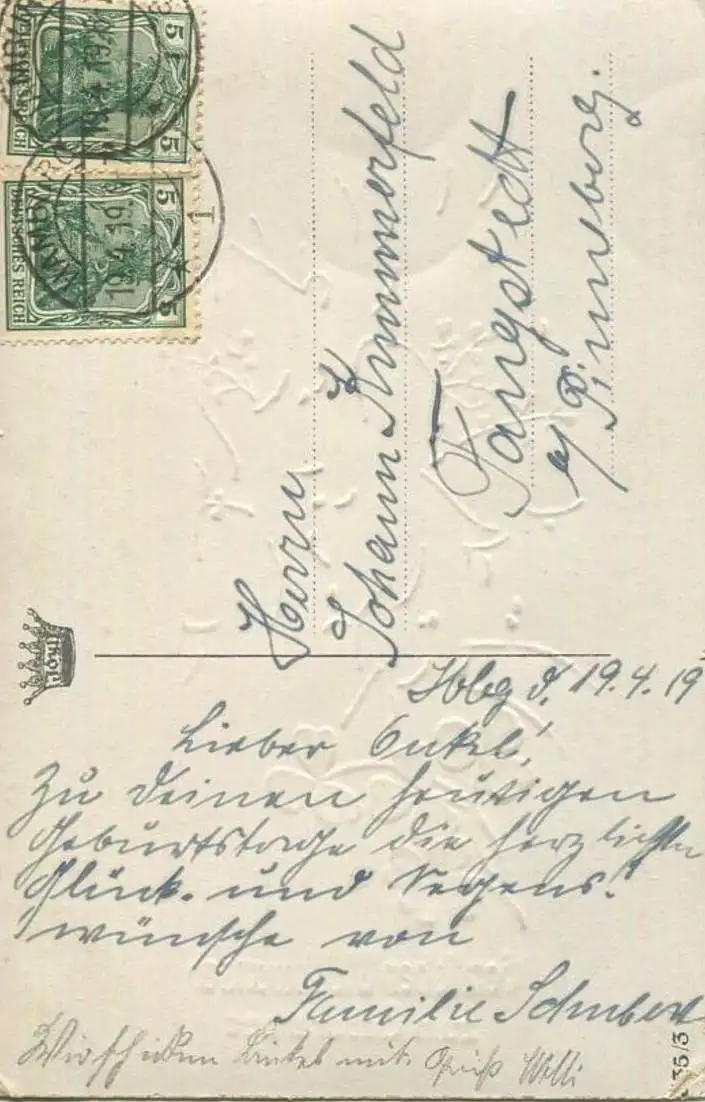 5
5
DEUTSCHES REICH
5
5
DEUTSCHES REICH
HAMBURG
19.4.19
1
Herrn
Johann Kummerfeld
Tangstedt
b/ Pinneberg.
Hbg d. 19.4.19
Lieber Onkel!
Zu deinen heutigen
Geburtstage die herzlichsten
Glück- und Segens-
wünsche von
Familie Schubert
Wir schicken mit. Gruß Willi